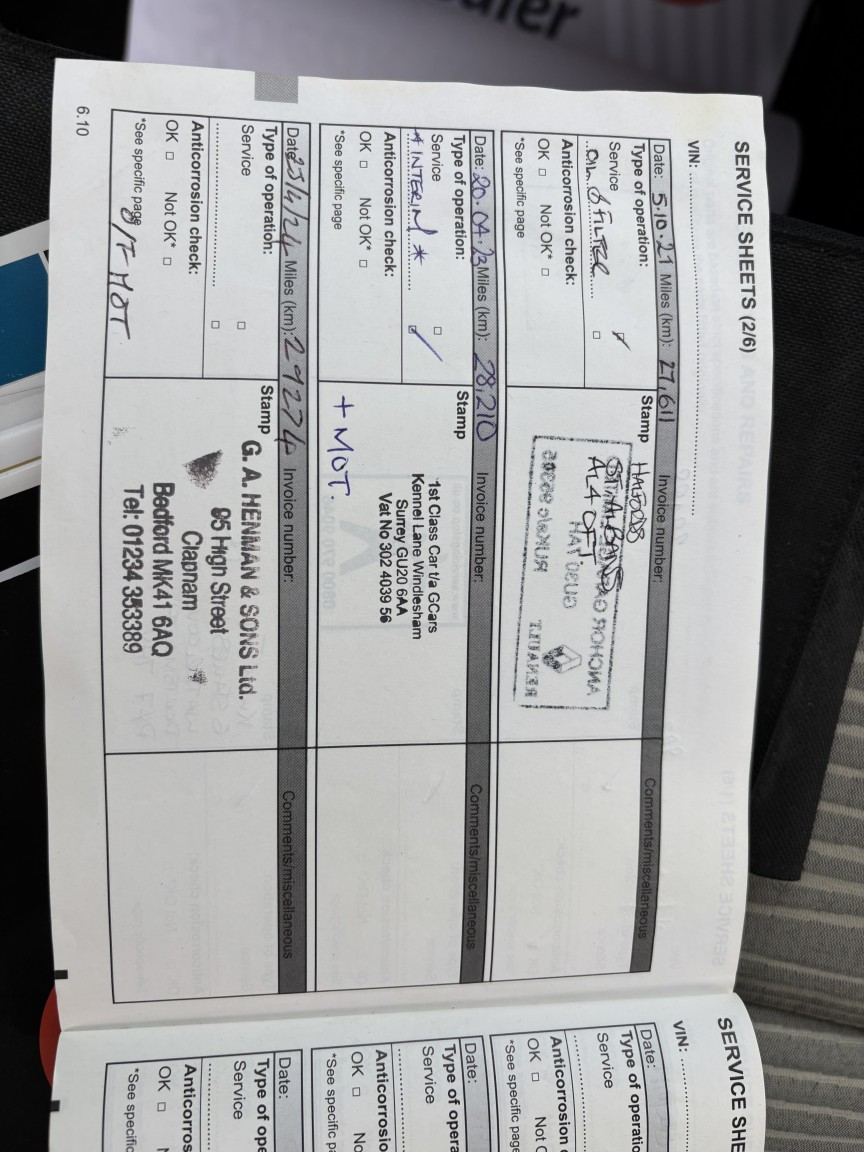 SERVICE SHEETS (2/6)
VIN:
Date: 5.10.21 Miles (km): 27,611 Invoice number: Comments/miscellaneous
Type of operation:
Service
OIL & FILTER
Anticorrosion check:
OK □ Not OK* □
*See specific page
Stamp
HALFORDS
AL4 0F
RENAULT
Date: 20.04.23 Miles (km): 28,210 Invoice number: Comments/miscellaneous
Type of operation:
Service
* INTERIM *
Anticorrosion check:
OK □ Not OK* □
*See specific page
Stamp
1st Class Car t/a GCars
Kennel Lane Windlesham
Surrey GU20 6AA
Vat No 302 4039 56
+ MOT.
Date: 25/4/24 Miles (km): 29274 Invoice number: Comments/miscellaneous
Type of operation:
Service
Anticorrosion check:
OK □ Not OK* □
*See specific page
O/F MOT
Stamp
G. A. HENMAN & SONS Ltd.
95 High Street
Clapham
Bedford MK41 6AQ
Tel: 01234 353389
6.10
SERVICE SHE
VIN:
Date:
Type of operatio
Service
Anticorrosion
OK □ Not O
*See specific page
Date:
Type of opera
Service
Anticorrosio
OK □ No
*See specific p
Date:
Type of ope
Service
Anticorros
OK □ N
*See specific